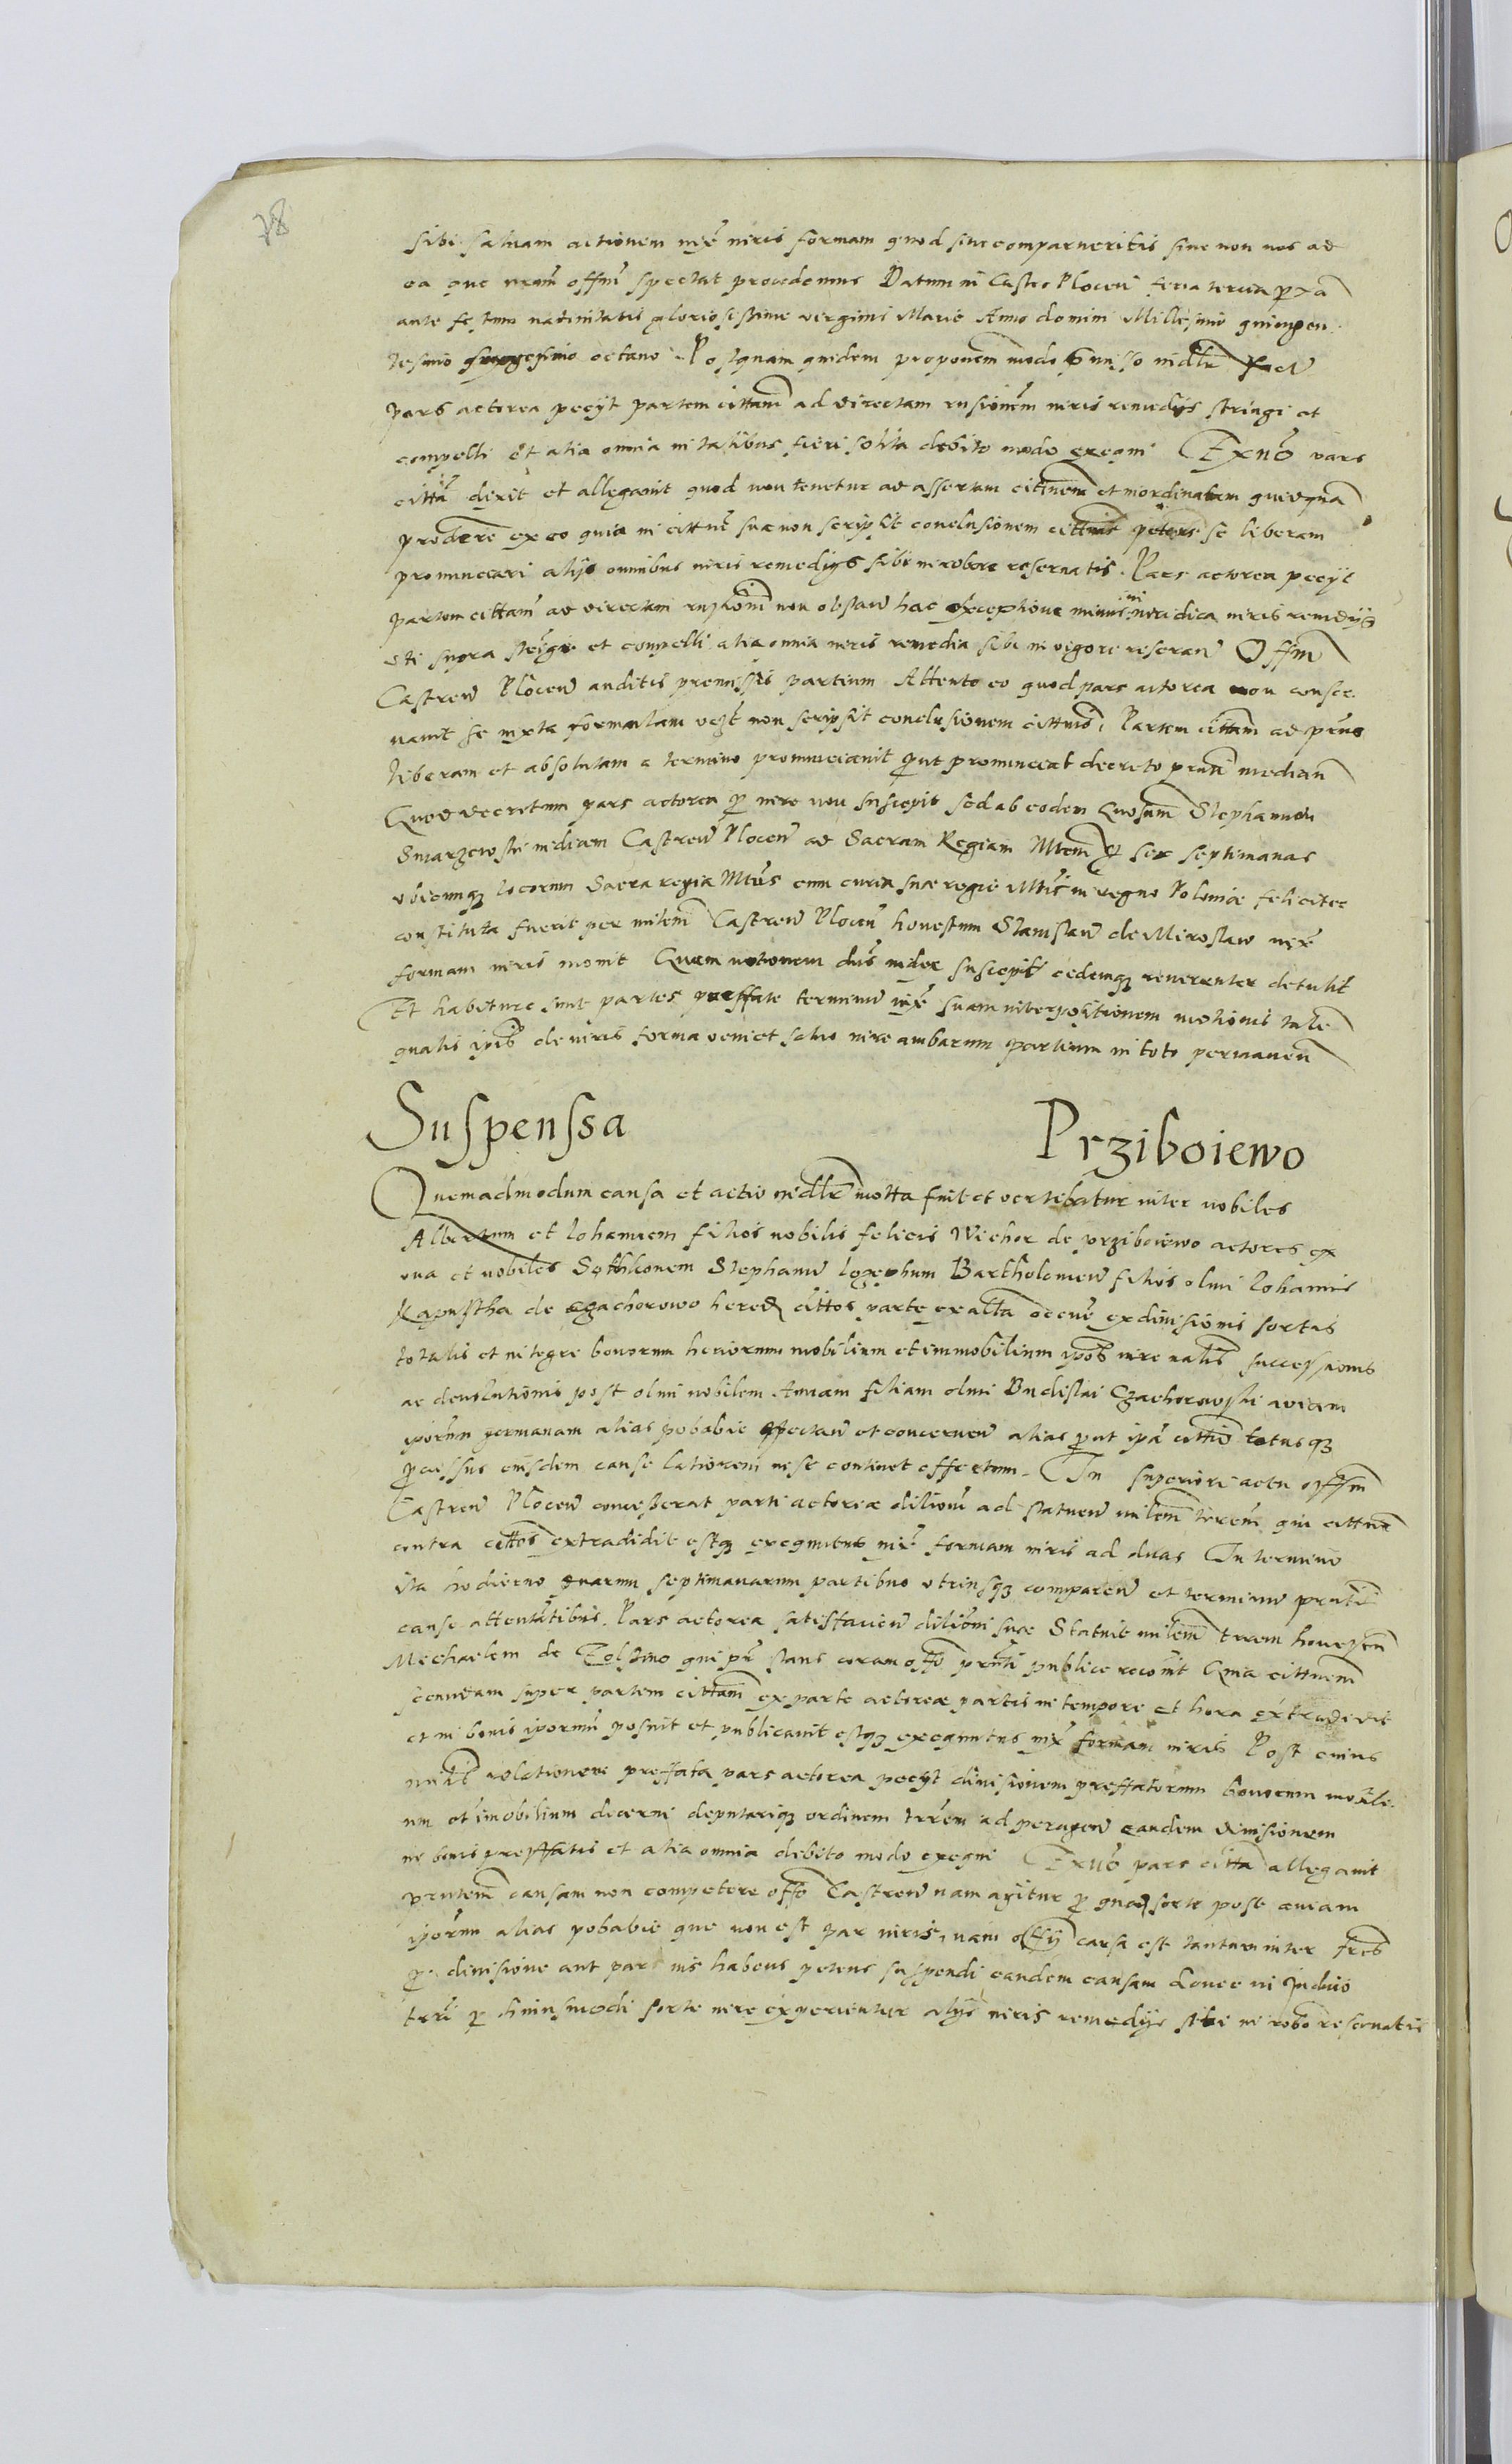 78
sibi saluam actionem iuxͤ iuris formam quod siue comparueritis siue non nos ad
ea que nrm̄ offm̄ spectat procedemus Datum in Castro Plocen feria tercia pxa
ante festum natiuitatis gloriosissime virginis Marie Anno domini Millesimo quingen
tesimo octauo Postquam quidem proponem modo
pars actorea peciit partem cittam ad directam rnsionem iuris remediis stringi et
compelli et alia omnia in talibus fieri solita debito modo exequi Ex no pars
citta dixit et allegauit quod non tenetur ad assertam cittnem et inordinatam quidquam
prodere ex eo quia in cittne sua non scripsit conclusionem cittnis petens se liberam
pronunciari aliis omnibus iuris remediis sibi in robore reseruatis. Pars actorea peciit
partem cittam ad directam non obstan hac exceptione minus iuridica iuris remediis
uti supra stringi et compelli alia omnia iuris remedia sibi in vigore reseruan Offm
Castren Plocen auditis premissis partium Attento eo quod pars actorea non conser
uauit se iuxta formulam vezt non scripsit conclusionem cittnis, Partem cittam ad prns
liberam et absolutam a termino pronunciauit put pronunciat decreto prnti median
Quod decretum pars actorea p iure non suscepit sed ab eodem Gnosum Stephanum
Smarzewski iudicem Castren Plocen ad Sacram Regiam Mtem p sex septimanas
vbicunqz locorum Sacra regia Mtas cum curia sua regie Mtis in regno Poloniae feliciter
constituta fuerit per milem Castren Plocen honestum Stanislaw de Miroslaw iuxͤ
formam iuris mouit Quam motionem dns iudex suscepit eidemqz reuerenter detulit
Et habiture sunt partes preffate terminum iuxͤ suam interpositionem motionis talem
qualis ipis de iuris forma veniet saluo iure ambarum partium in toto permanen
Suspenssa Prziboiewo
Quemadmodum causa et actio iudltr motta fuit et vertebatur inter nobiles
Albertum et Iohannem filios nobilis felicis Wichor de prziboiewo actores ex
vna et nobiles Stephanum Iozephum Bartholomeum filios olim Iohannis
Kapustha de Czachorowo hered cittos parte ex alta occne ex diuisionis sortis
totalis et integre bonorum hectorum mobilium et immobilium ipos iure nalis successionis
ac deuolutionis post olim nobilem Annam filiam olim Budislai Czachorowski auiam
iporum germanam alias pobabie spectan et concernen alias put ipa citto totusqz
pcessus eiusdem cause latiorem in se continet effectum. In superiori actu offm
Castren Plocen concesserat parti actoreae dilionem ad statuen milem terrem qui cittnem
contra cittos extradidit estqz exequutus iuxͤ formam iuris ad duas In termino
ita hodierno duarum septimanarum partibus vtrinsqz comparen et terminum prntis
cause attentatibus. Pars actorea satisfacien dilioni sue Statuit milem terrem honestum
Michaelem de qui pr stans coram offo prnti publice recoit Qma cittnem
secundam super partem cittam ex parte actoreae partis in tempore et hora extradidit
et in bonis iporum posuit et publicauit estqz exequutus iuxͤ formam iuris Post cuius
relationem preffata pars actorea peciit diuisionem preffatorum bonorum mobili
um et imobilium decerni deputariqz ordinem trrem ad peragen eandem diuisionem
in bonis preffatis et alia omnia debito modo exequi Ex no pars citta allegauit
prntem causam non competere offo Castren nam agitur p quadam sorte post auiam
iporum alias pobabie que non est par iuris, nam offij causa est tantum inter fres
p diuisione aut par ius habens petens suspendi eandem causam donec in iudicio
trri p huiusmodi sorte iure experientur aliis iuris remediis sibi in robo reseruatis